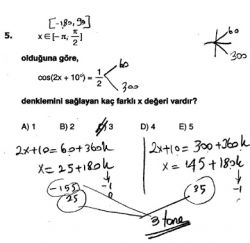 [-180, 90]
5. x ∈ [-π, π/2]
olduğuna göre,
cos(2x + 10°) = 1/2
60
300
60
300
denklemini sağlayan kaç farklı x değeri vardır?
A) 1 B) 2 C) 3 D) 4 E) 5
2x+10=60+360k
x=25+180k
-155
25
-1
0
2x+10=300+360k
x=145+180k
-1
35
3 tane